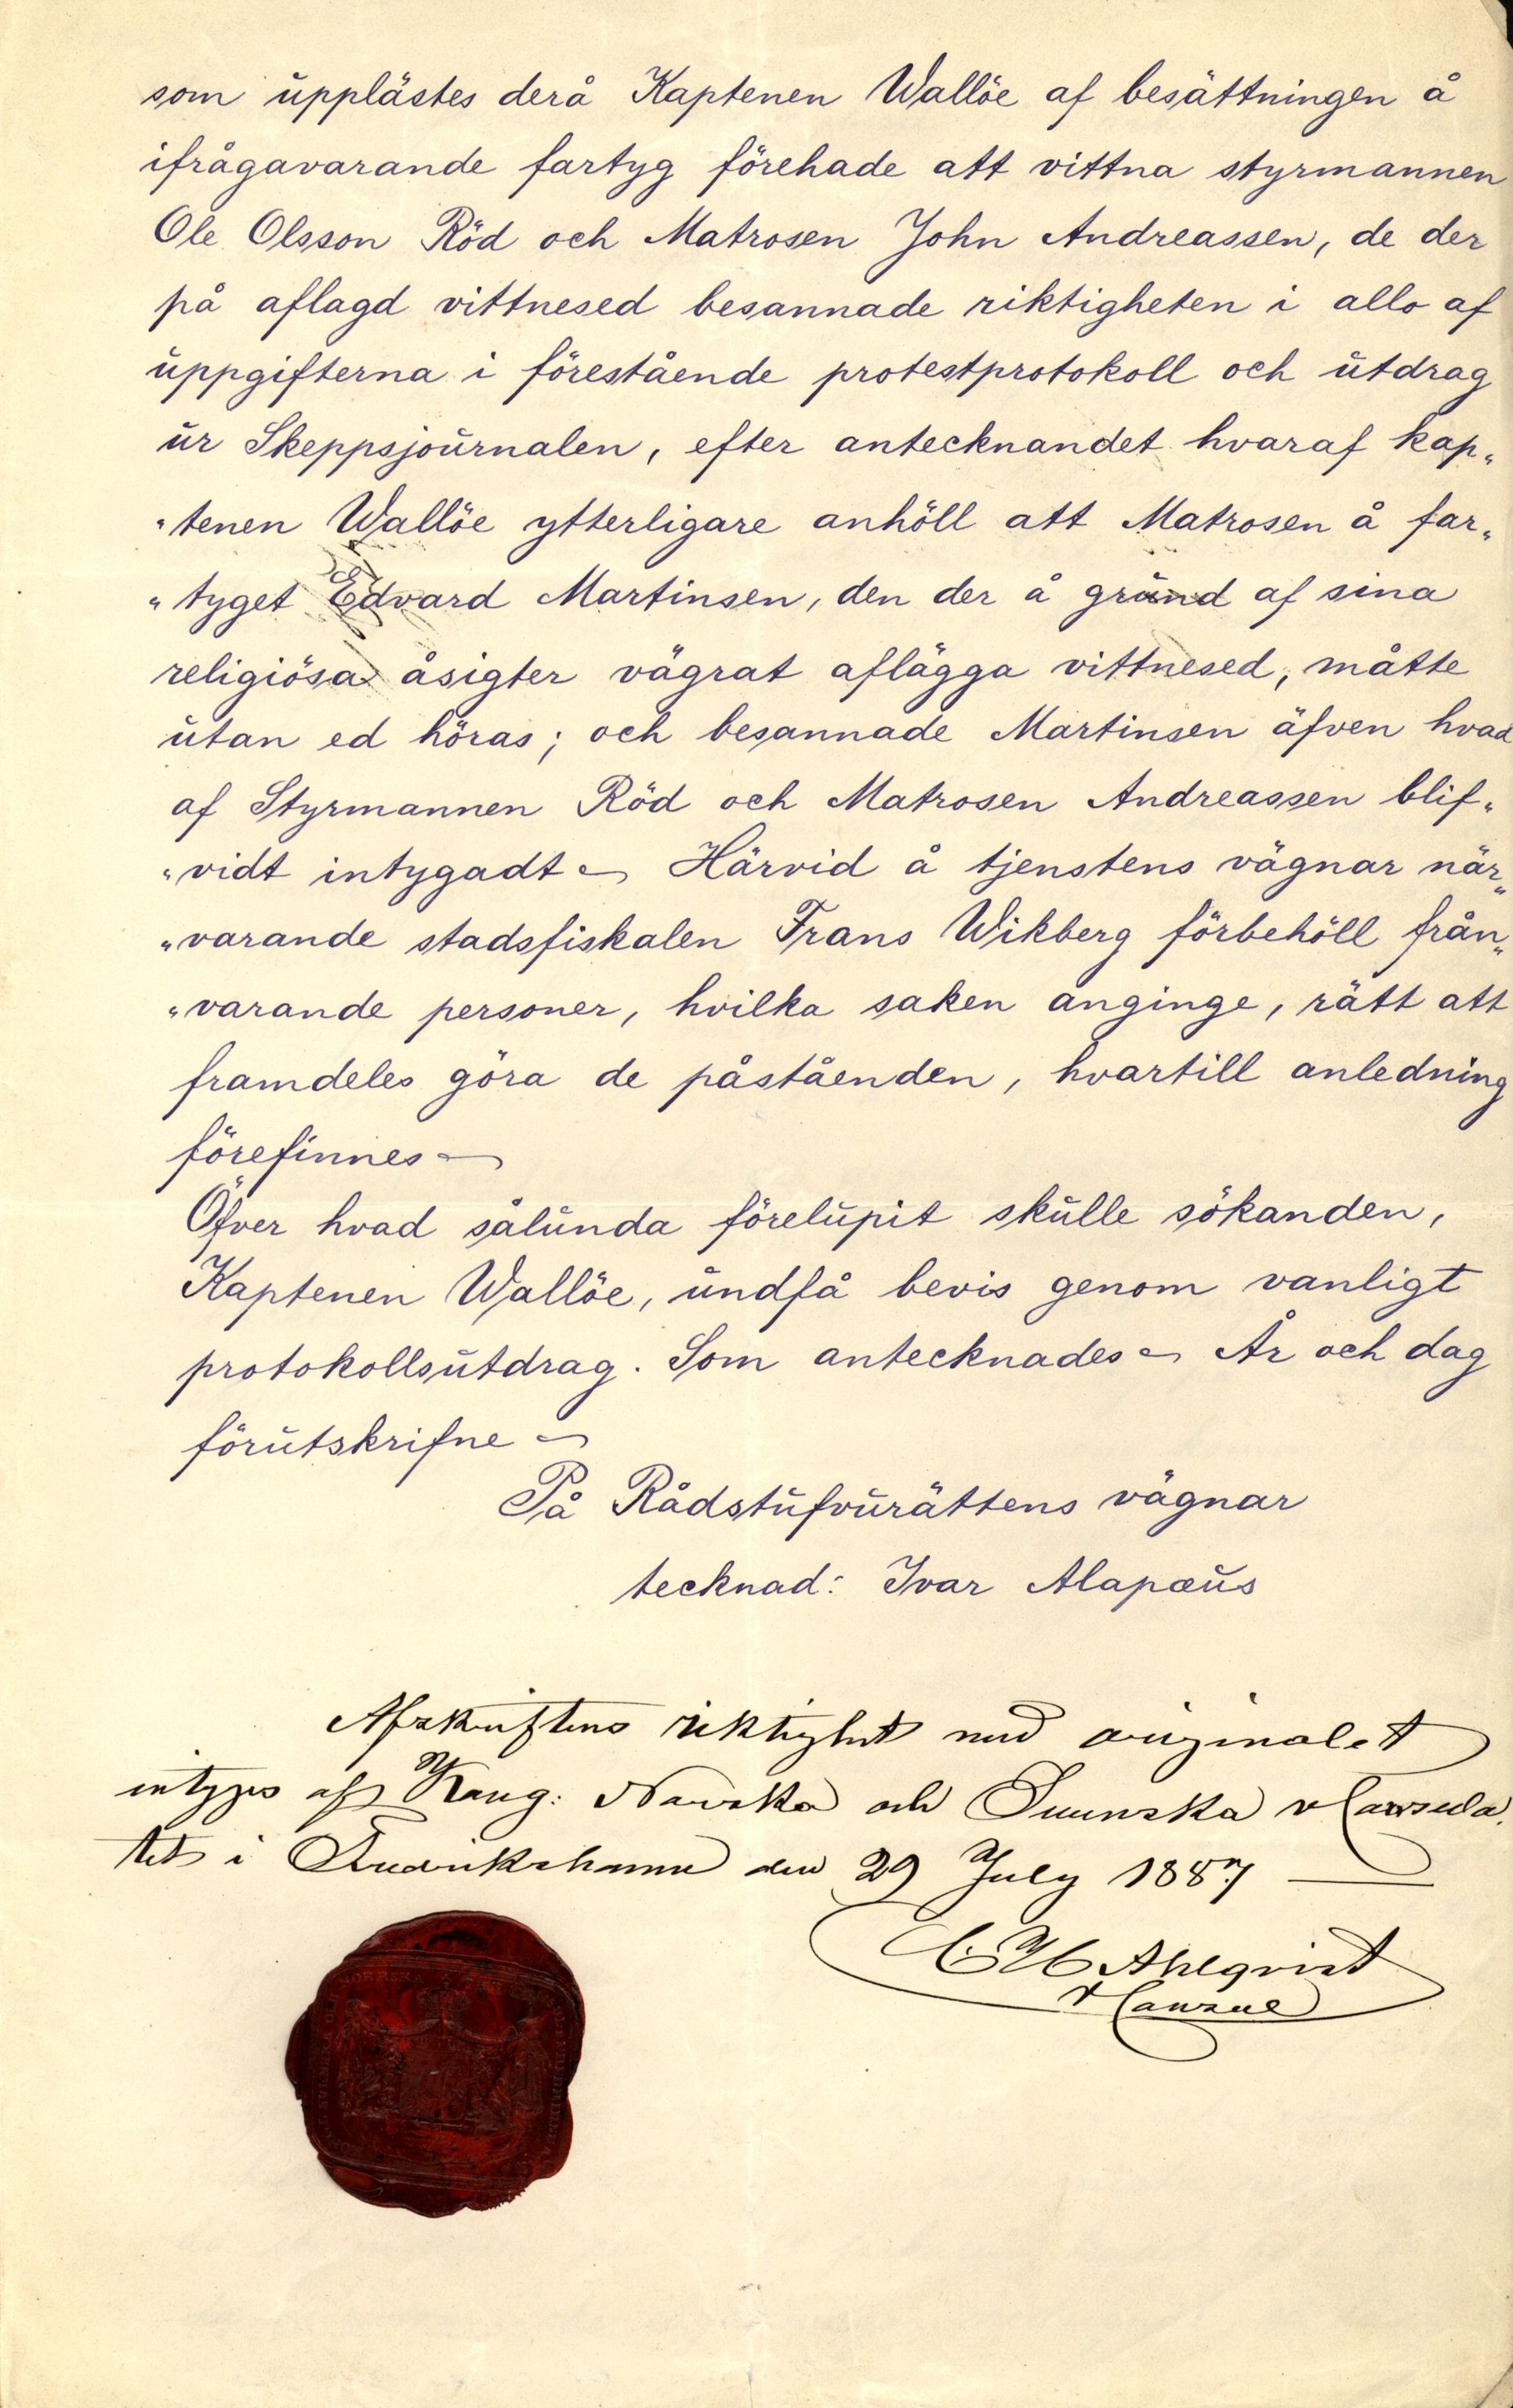 som upplästes derå Kaptenen Wallöe af besättningen å
ifrågavarande fartyg förehade att vittna styrmannen
Ole Olsson Röd och Matrosen John Andreassen, de der
på aflagd vittnesed besannade riktigheten i allo af
uppgifterna i förestående protestprotokoll och utdrag
ur Skeppsjournalen, efter antecknandet hvaraf kap„
„tenen Wallöe ytterligare anhöll att Matrosen å far„
„tyget Edvard Martinsen, den der å grund af sina
religiösa åsigter vägrat aflägga vittnesed, måtte
utan ed höras; och besannade Martinsen äfven hvad
af Styrmannen Röd och Matrosen Andreassen blif„
„vidt intygadt – Härvid å tjenstens vägnar när„
„varande stadsfiskalen Frans Wikberg förbehöll från„
„varande personer, hvilka saken anginge, rätt att
framdeles göra de påståenden, hvartill anledning
förefinnes –
Öfver hvad sålunda förelupit skulle sökanden,
Kaptenen Wallöe, undfå bevis genom vanligt
protokollsutdrag. Som antecknades – År och dag
förutskrifne –
På Rådstufvurättens vägnar
tecknad: Ivar Alapæus
Afskriftens riktighet med originalet
intygas af Kong: Norska och Svenska v Consula
tet i Fredrikshamn den 29 July 1887
C H Ahlqvist
v Consul